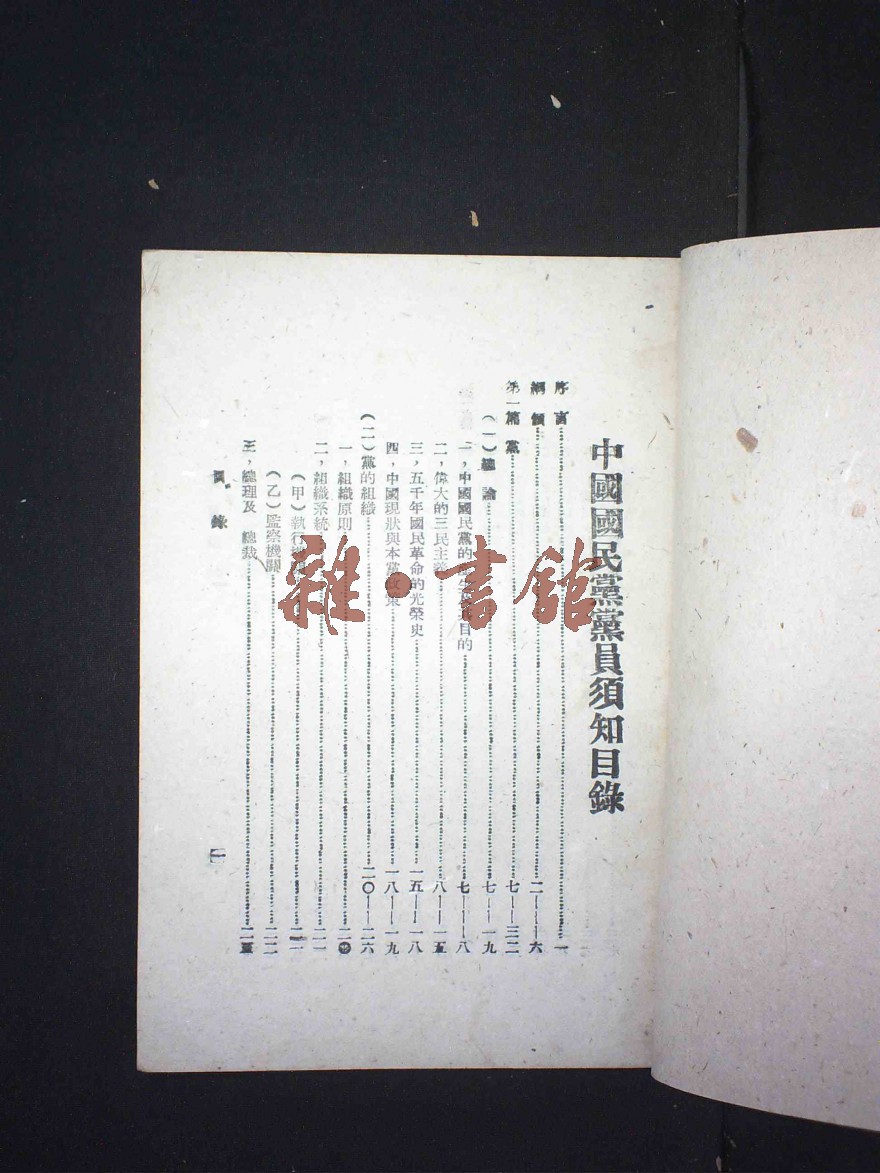 中國國民黨黨員須知目錄
序言……一
綱領……二——六
第一篇 黨……七——三二
(一)總論……七——一九
一，中國國民黨的 目的……七——八
二，偉大的三民主義……八——一五
三，五千年國民革命的光榮史……一五——一八
四，中國現狀與本黨政策……一八——一九
(二)黨的組織……二〇——二六
一，組織原則……二
二，組織系統……二一
(甲)執行……二一
(乙)監察機關……二二
三，總理及 總裁……二
目錄
一
雜·書館